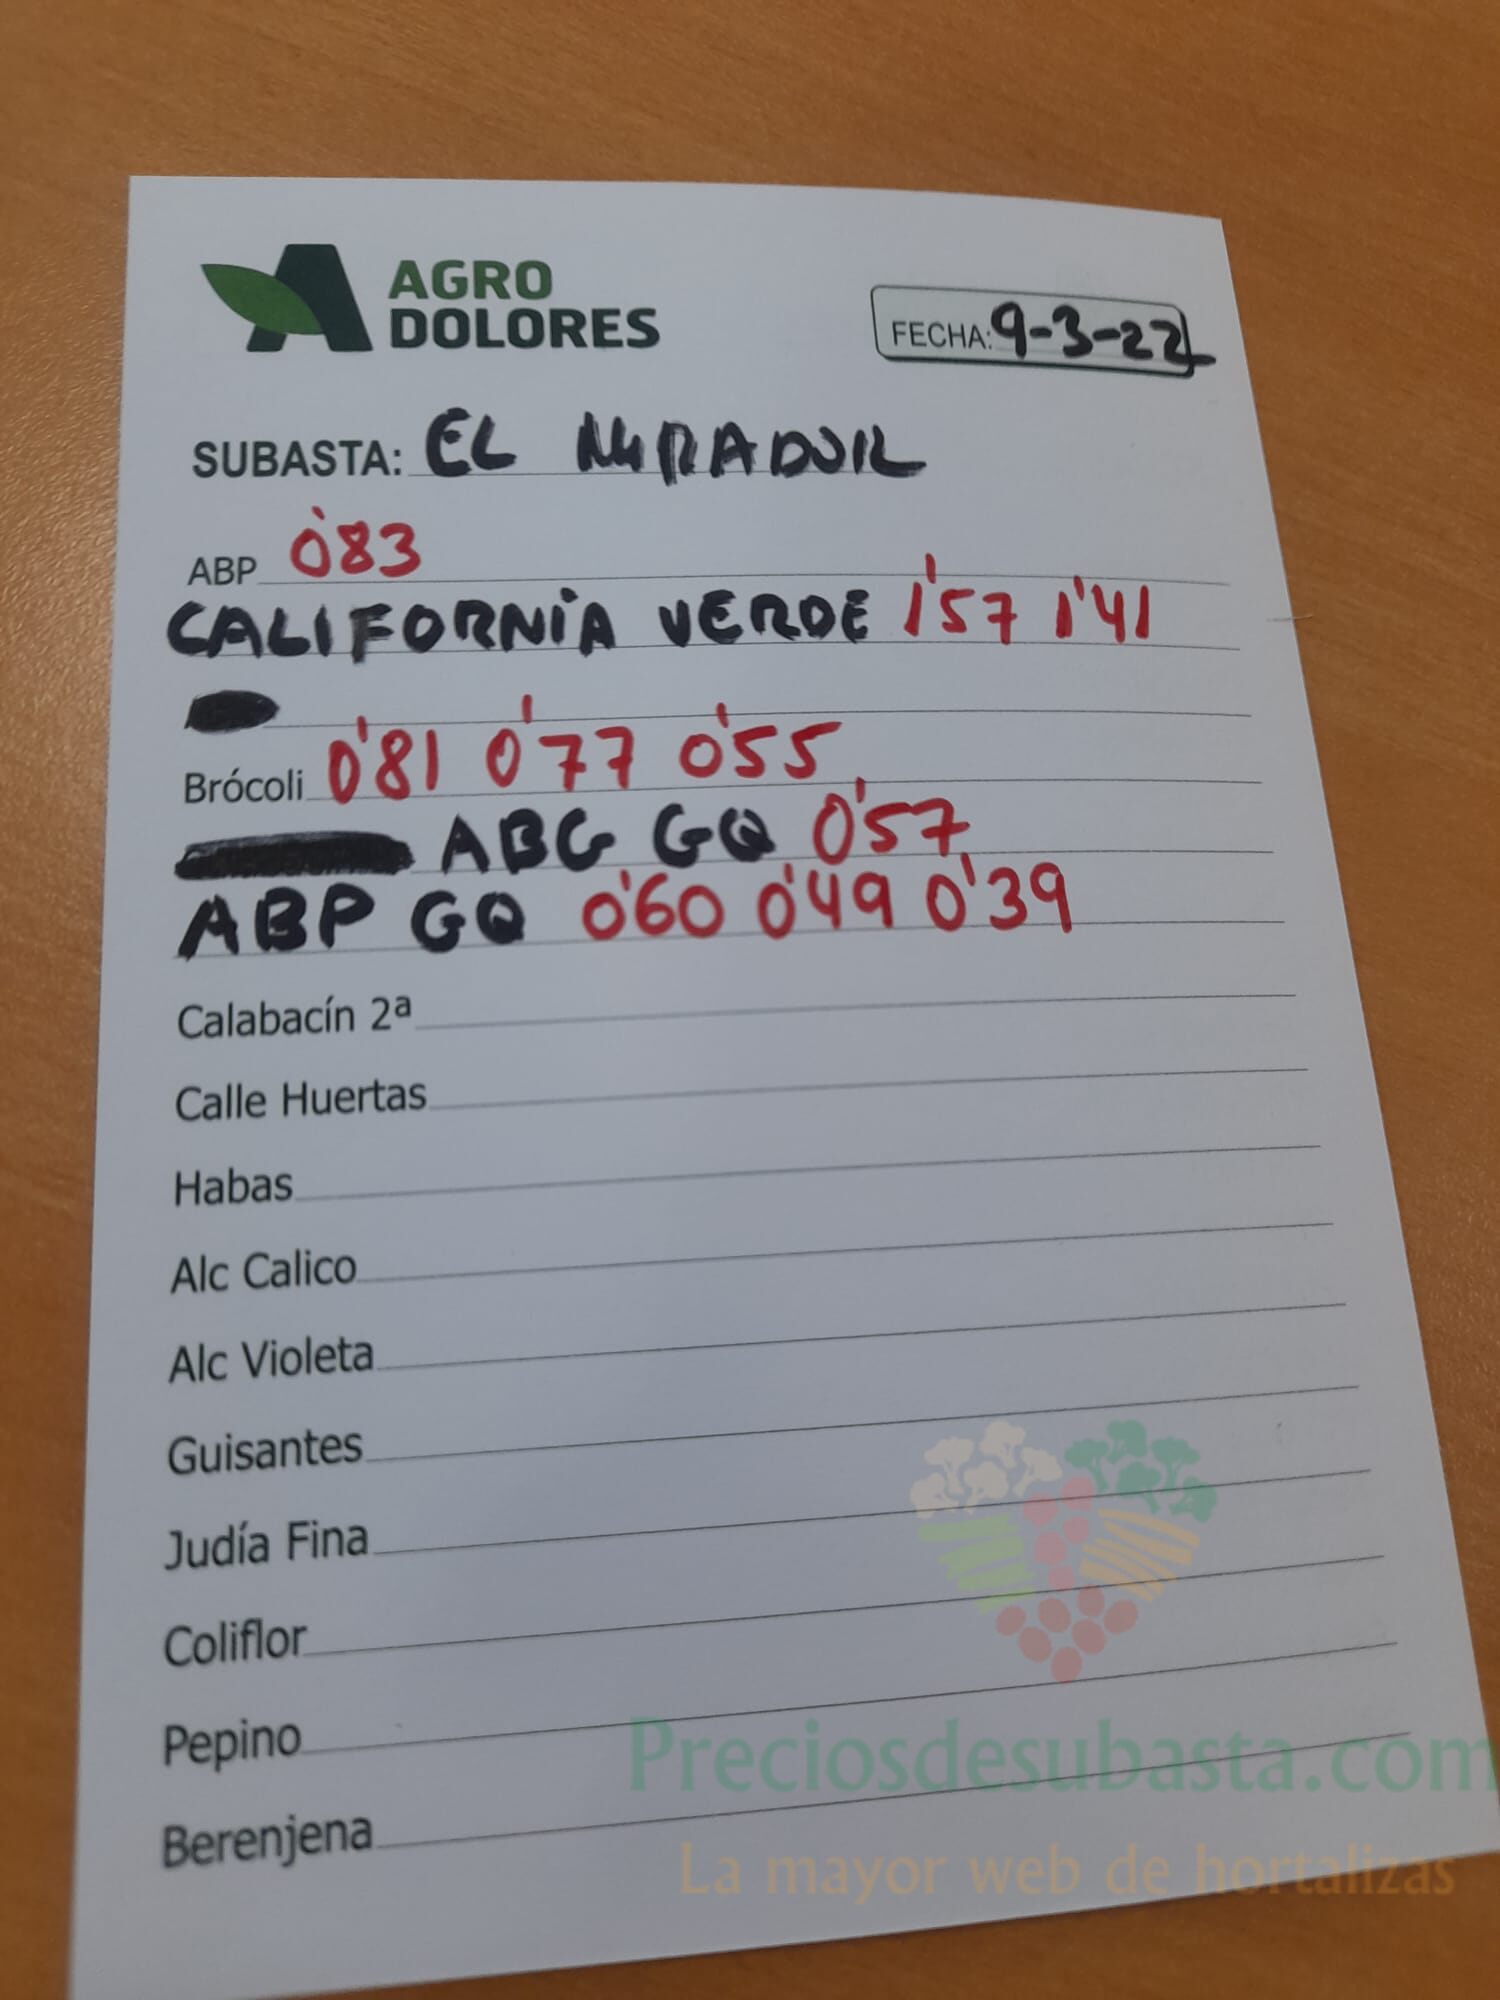 AGRO
DOLORES
FECHA: 9-3-22
SUBASTA: EL MIRADOR
ABP 0'83
CALIFORNIA VERDE 1'57 1'41
Brócoli 0'81 0'77 0'55
ABG GQ 0'57
ABP GQ 0'60 0'49 0'39
Calabacín 2ª
Calle Huertas
Habas
Alc Calico
Alc Violeta
Guisantes
Judía Fina
Coliflor
Pepino
Berenjena
Preciosdesubasta.com
La mayor web de hortalizas